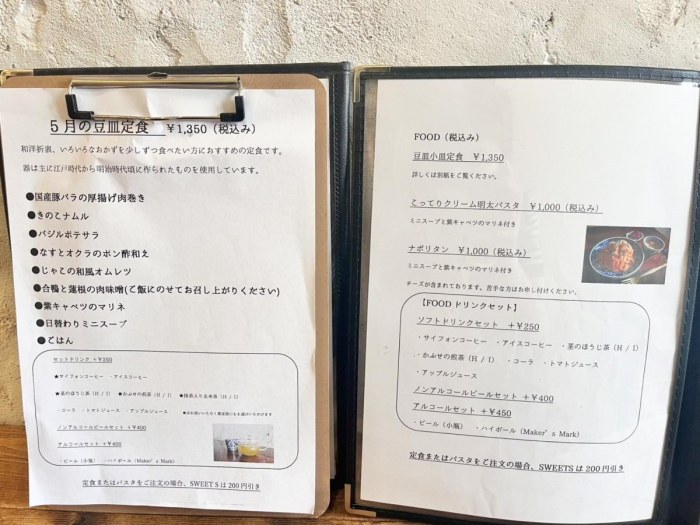 5月の豆皿定食　￥1,350（税込み）
和洋折衷、いろいろなおかずを少しずつ食べたい方におすすめの定食です。
器は主に江戸時代から明治時代頃に作られたものを使用しています。
●国産豚バラの厚揚げ肉巻き
●きのこナムル
●バジルポテサラ
●なすとオクラのポン酢和え
●じゃこの和風オムレツ
●合鴨と蓮根の肉味噌(ご飯にのせてお召し上がりください)
●紫キャベツのマリネ
●日替わりミニスープ
●ごはん
セットドリンク ＋￥250
★サイフォンコーヒー　・アイスコーヒー
★茎のほうじ茶（H / I）　★かぶせの煎茶（H / I）　★抹茶入り玄米茶（H / I）
・コーラ　・トマトジュース　・アップルジュース
ノンアルコールビールセット ＋￥400
アルコールセット ＋￥450
・ビール（小瓶）　・ハイボール（Maker's Mark）
定食またはパスタをご注文の場合、SWEETSは200円引き
FOOD（税込み）
豆皿小皿定食　￥1,350
詳しくは別紙をご覧ください。
こってりクリーム明太パスタ　￥1,000（税込み）
ミニスープと紫キャベツのマリネ付き
ナポリタン　￥1,000（税込み）
ミニスープと紫キャベツのマリネ付き
チーズが含まれております。苦手な方はお申し付けください。
【FOODドリンクセット】
ソフトドリンクセット　＋￥250
・サイフォンコーヒー　・アイスコーヒー　・茎のほうじ茶（H / I）
・かぶせの煎茶（H / I）　・コーラ　・トマトジュース
・アップルジュース
ノンアルコールビールセット ＋￥400
アルコールセット ＋￥450
・ビール（小瓶）　・ハイボール（Maker's Mark）
定食またはパスタをご注文の場合、SWEETSは200円引き